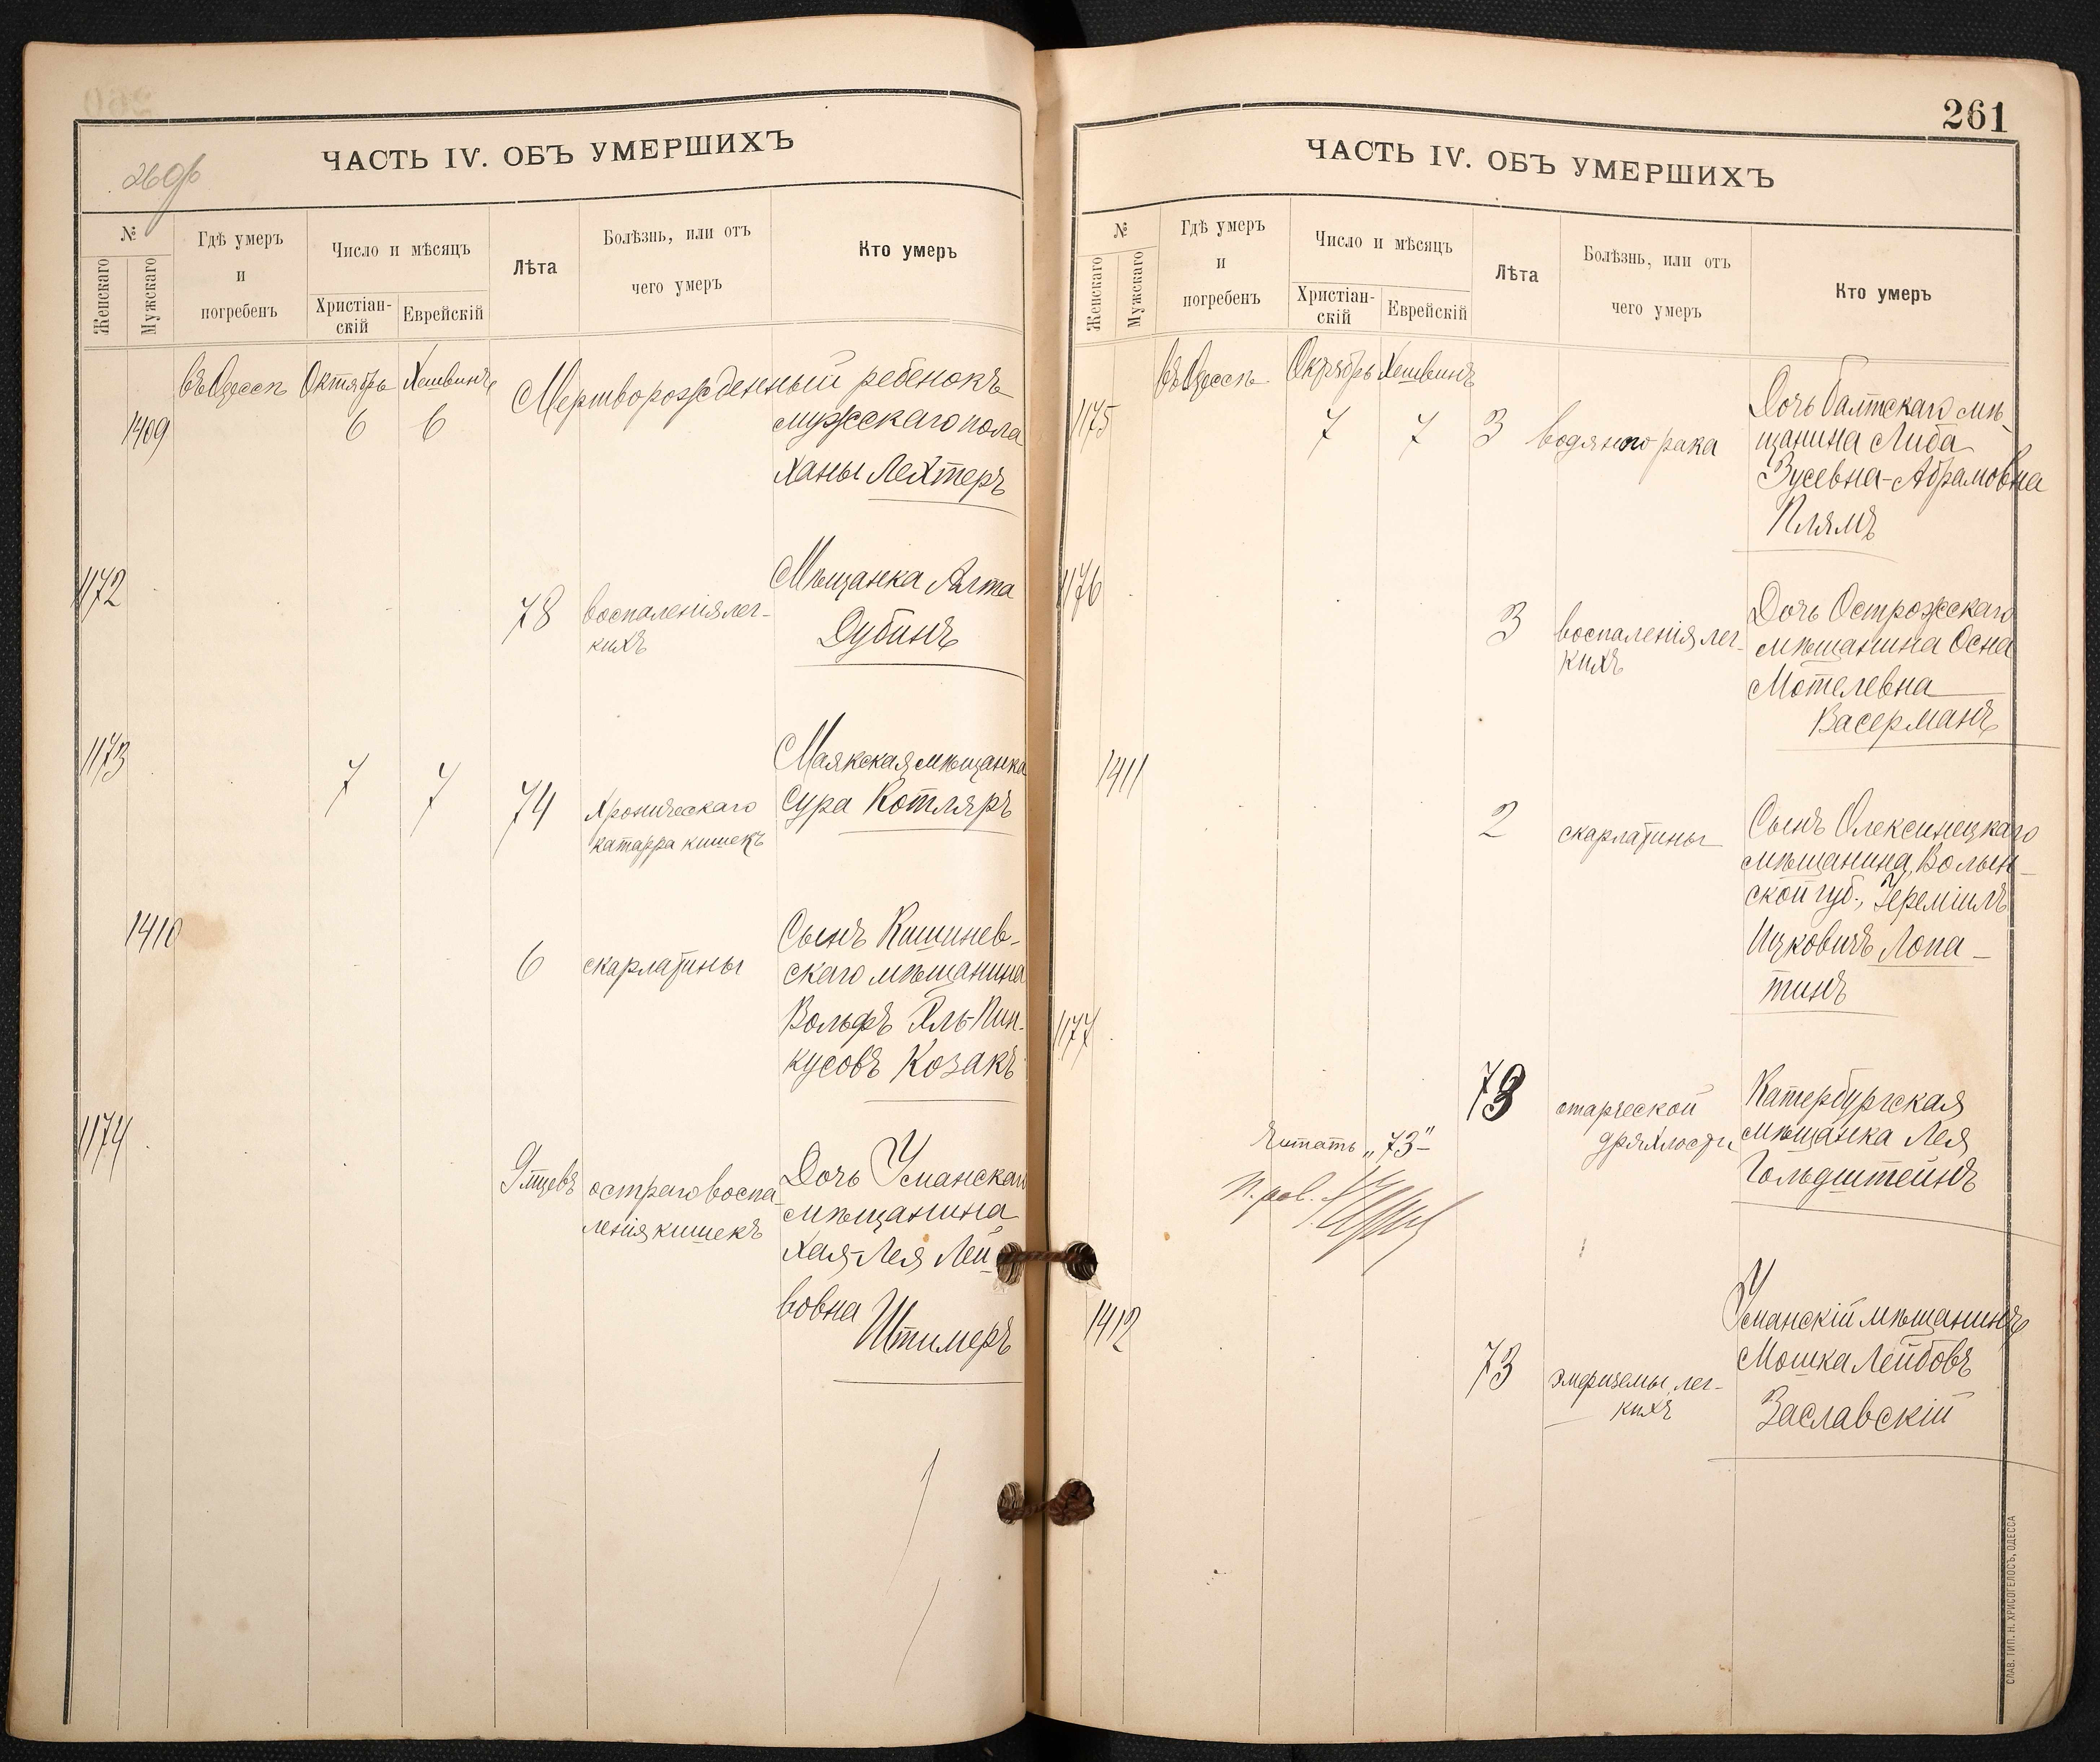 ЧАСТЬ IV. ОБЪ УМЕРШИХЪ
260
№
Женскаго
Мужскаго
Гдѣ умеръ
и
погребенъ
Число и мѣсяцъ
Христіан-
скій
Еврейскій
Лѣта
Болѣзнь, или отъ
чего умеръ
Кто умеръ
въ Одессѣ Октябрь Хешвинъ
1409
6 6
Мертворожденный ребенокъ
мужскаго пола
Ханы Лехтеръ
1172
78
воспаленія лег-
кихъ
Мѣщанка Алта
Дубинъ
1173
7 7 74
хроническаго
катарра кишекъ
Маякская мѣщанка
Сура Котляръ
1410
6
скарлатины
Сынъ Кишинев-
скаго мѣщанина
Вольфъ Пин-
кусовъ Козакъ
1174
9 мцевъ
остраго воспа
ленія кишекъ
Дочь Уманскаго
мѣщанина
Хая-Лея Лей-
бовна
Штимеръ
261
ЧАСТЬ IV. ОБЪ УМЕРШИХЪ
№
Женскаго
Мужскаго
Гдѣ умеръ
и
погребенъ
Число и мѣсяцъ
Христіан-
скій
Еврейскій
Лѣта
Болѣзнь, или отъ
чего умеръ
Кто умеръ
въ Одессѣ Октябрь Хешвинъ
1175
7 7 3
водяного рака
Дочь Балтскаго мѣ-
щанина Либа
Зусевна-Абрамовна
Плямъ
1176
3
воспаленія лег-
кихъ
Дочь Острожскаго
мѣщанина Осна
Мотелевна
Васерманъ
1411
2
скарлатины
Сынъ Олексинецкаго
мѣщанина, Волын-
ской губ., Іереміилъ
Ицковичъ Лопа-
тинъ
1177
73
старческой
дряхлости
Катербургская
мѣщанка Лея
Гольдштейнъ
Читать „73"-
1412
73
эмфиземы лег-
кихъ
Уманскій мѣщанинъ
Мошка Лейбовъ
Заславскій
СЛАВ. ТИП. Н. ХРИСОГЕЛОСЪ, ОДЕССА